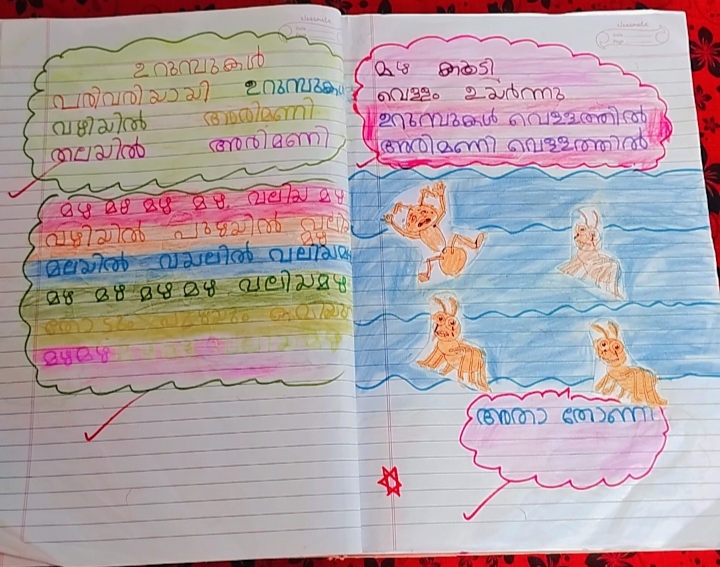 classmate
ഉറുമ്പുകൾ
വരിവരിയായി ഉറുമ്പുകൾ
വഴിയിൽ അരിമണി
തലയിൽ അരിമണി
മഴ മഴ മഴ മഴ വലിയ മഴ
വഴിയിൽ പുഴയിൽ വലിയ മഴ
മലയിൽ വയലിൽ വലിയമഴ
മഴ മഴ മഴ മഴ വലിയമഴ
മഴമഴ
classmate
മഴ കൂടി
വെള്ളം ഉയർന്നു
ഉറുമ്പുകൾ വെള്ളത്തിൽ
അരിമണി വെള്ളത്തിൽ
അതാ തോണി